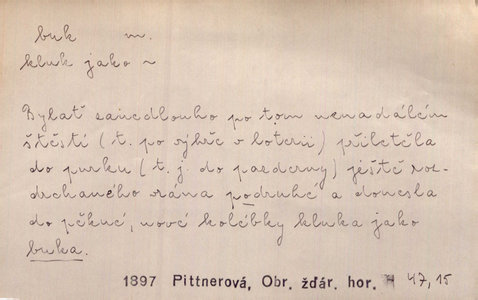 buk m.
kluk jako ~
Bylať zanedlouho po tom nenadálém
štěstí (t. po výhře v loterii) přiletěla
do purku (t. j. do pazderny) ještě roz-
drchaného rána podruhé a donesla
do pěkné, nové kolébky kluka jako
buka.
1897 Pittnerová, Obr. žďár. hor. 47, 15